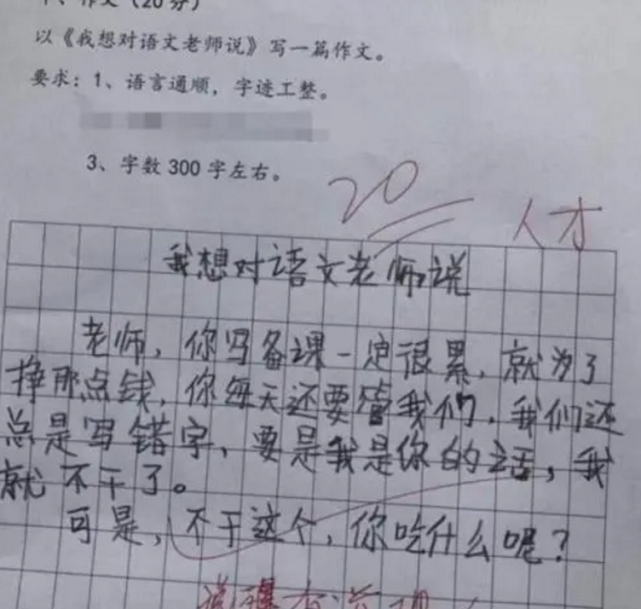 、作文（20分）
以《我想对语文老师说》写一篇作文。
要求：1、语言通顺，字迹工整。
3、字数300字左右。
20
人才
我想对语文老师说
老师，你写备课一定很累，就为了
挣那点钱，你每天还要管我们，我们还
总是写错字，要是我是你的话，我
就不干了。
可是，不干这个，你吃什么呢？